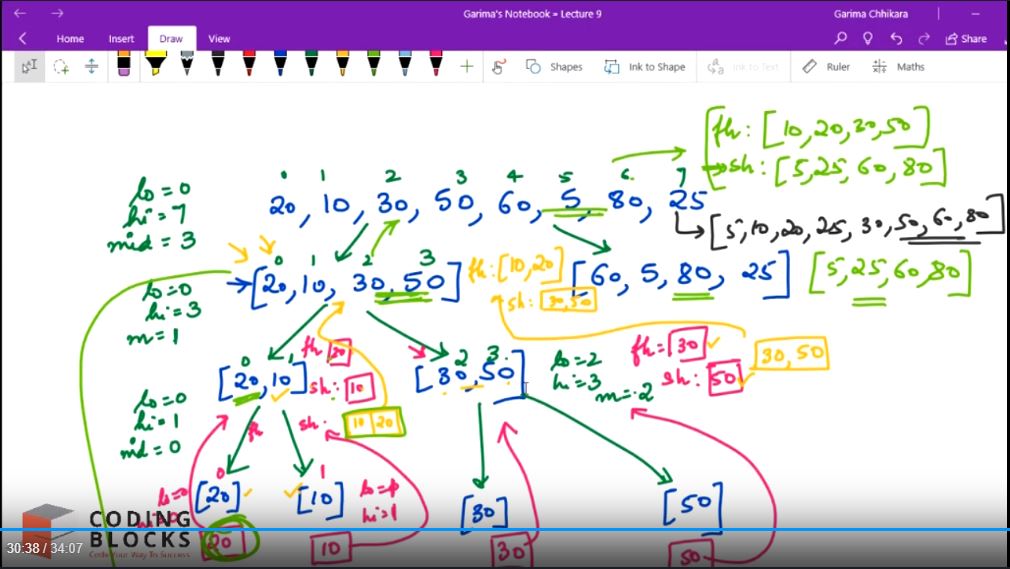 Garima's Notebook » Lecture 9
Garima Chhikara
Home Insert Draw View
Share
Shapes Ink to Shape Ink to Text Ruler Maths
fh: [10,20,30,50]
sh: [5,25,60,80]
0 1 2 3 4 5 6 7
lo=0
hi=7
mid=3
20, 10, 30, 50, 60, 5, 80, 25
[5,10,20,25,30,50,60,80]
0 1 2 3
[20,10,30,50]
fh:[10,20]
sh:[30,50]
[60, 5, 80, 25]
[5,25,60,80]
lo=0
hi=3
m=1
0 1
[20,10]
fh
sh: 10
10 20
2 3
[30,50]
lo=2
hi=3
m=2
fh= 30
sh: 50
30, 50
lo=0
hi=1
mid=0
fh
sh:
0
[20]
1
[10]
hi=1
[30]
[50]
lo=0
20
10
30
50
CODING
BLOCKS
Code Your Way To Success
30:38 / 34:07